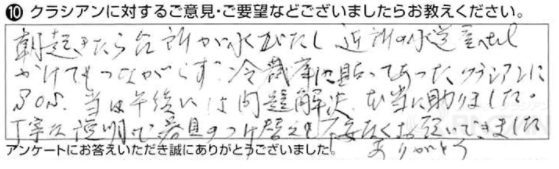 ⑩ クラシアンに対するご意見・ご要望などございましたらお教えください。
朝起きたら台所が水びたし 近所の水道屋へTEL
かけてもつながらず. 冷蔵庫に貼ってあったクラシアンに
TEL. 当日午後には問題解決. 本当に助りました。
丁寧な説明で器具のつけ替えも不安なくお願いできました
アンケートにお答えいただき誠にありがとうございました。 ありがとう